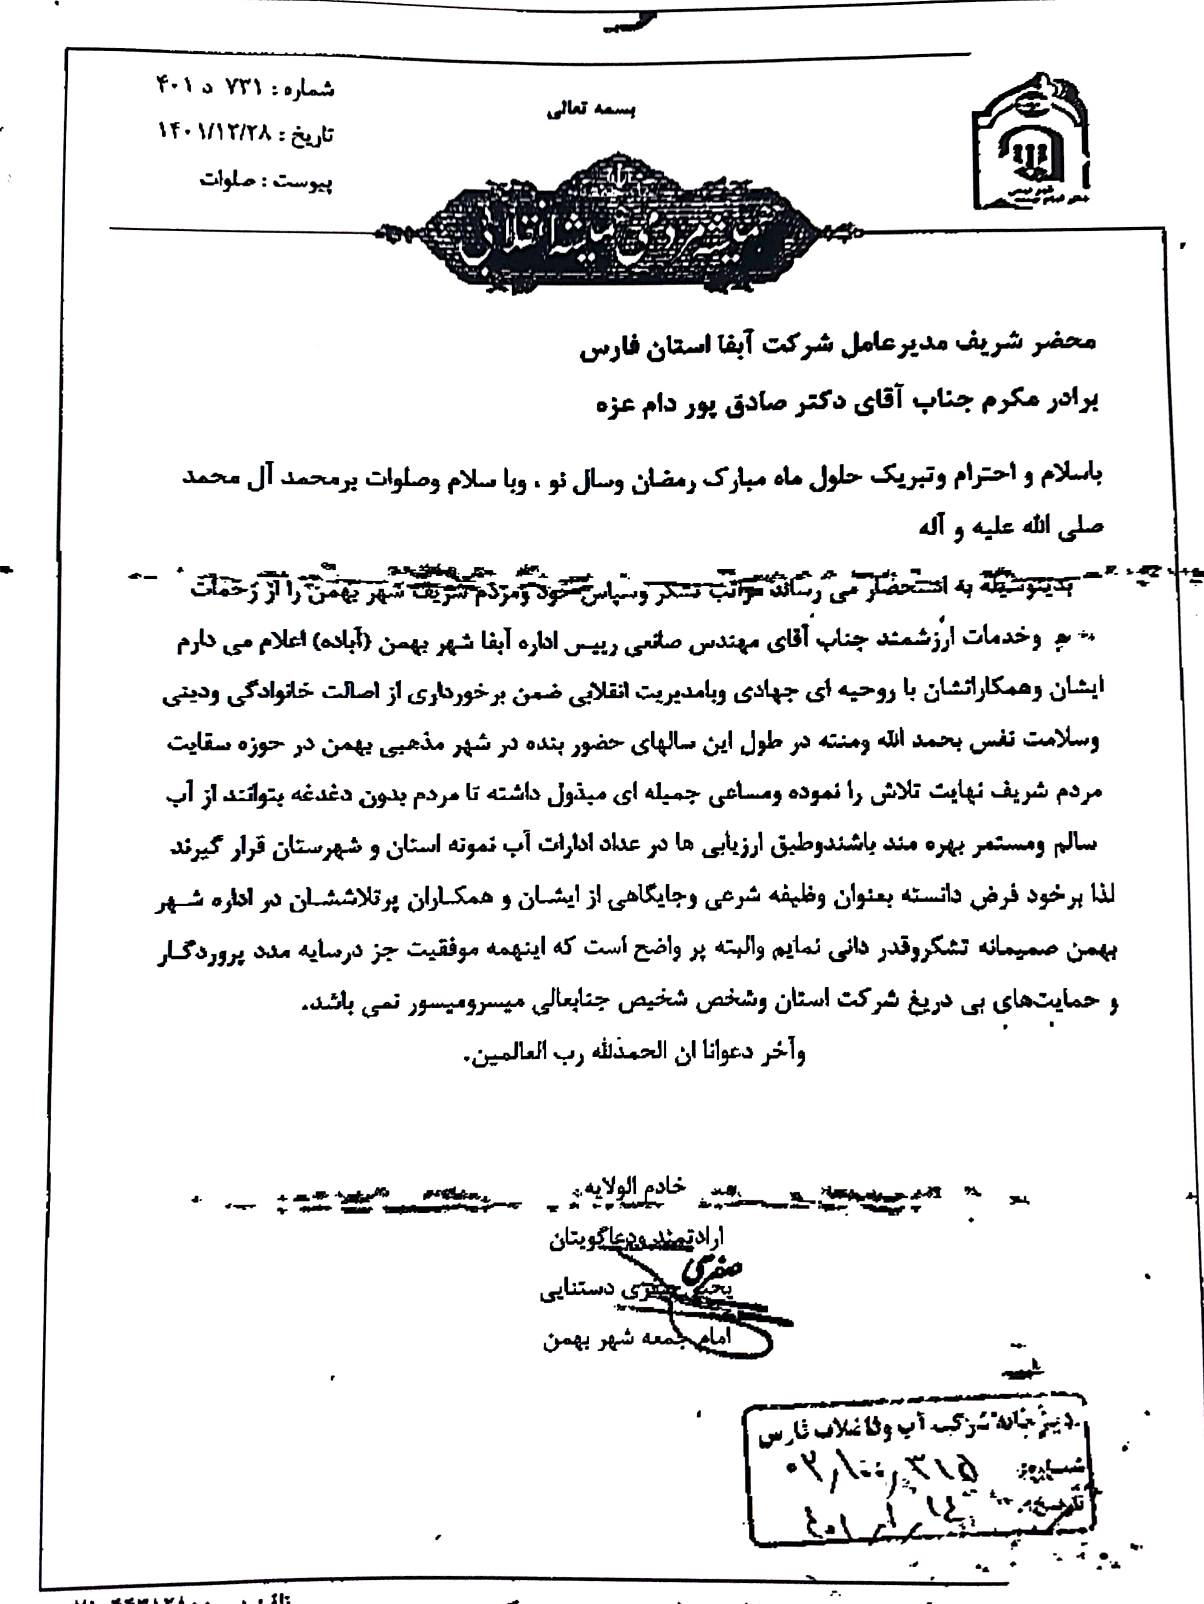 بسمه تعالی
شماره : ۷۳۱ د ۴۰۱
تاریخ : ۱۴۰۱/۱۲/۲۸
پیوست : صلوات
محضر شریف مدیرعامل شرکت آبفا استان فارس
برادر مکرم جناب آقای دکتر صادق پور دام عزه
باسلام و احترام وتبریک حلول ماه مبارک رمضان وسال نو ، وبا سلام وصلوات برمحمد آل محمد
صلی الله علیه و آله
بدینوسیله به استحضار می رساند مراتب تشکر وسپاس خود ومردم شریف شهر بهمن را از زحمات
وخدمات ارزشمند جناب آقای مهندس صانعی رییس اداره آبفا شهر بهمن (آباده) اعلام می دارم
ایشان وهمکارانشان با روحیه ای جهادی وبامدیریت انقلابی ضمن برخورداری از اصالت خانوادگی ودینی
وسلامت نفس بحمد الله ومنته در طول این سالهای حضور بنده در شهر مذهبی بهمن در حوزه سقایت
مردم شریف نهایت تلاش را نموده ومساعی جمیله ای مبذول داشته تا مردم بدون دغدغه بتوانند از آب
سالم ومستمر بهره مند باشندوطبق ارزیابی ها در عداد ادارات آب نمونه استان و شهرستان قرار گیرند
لذا برخود فرض دانسته بعنوان وظیفه شرعی وجایگاهی از ایشان و همکاران پرتلاششان در اداره شهر
بهمن صمیمانه تشکروقدر دانی نمایم والبته پر واضح است که اینهمه موفقیت جز درسایه مدد پروردگار
و حمایت‌های بی دریغ شرکت استان وشخص شخیص جنابعالی میسرومیسور نمی باشد.
وآخر دعوانا ان الحمدلله رب العالمین.
خادم الولایه
ارادتمند ودعاگویتان
دستنایی
امام جمعه شهر بهمن
دبیرخانه شرکت آب وفاضلاب فارس
شماره:
تاریخ: